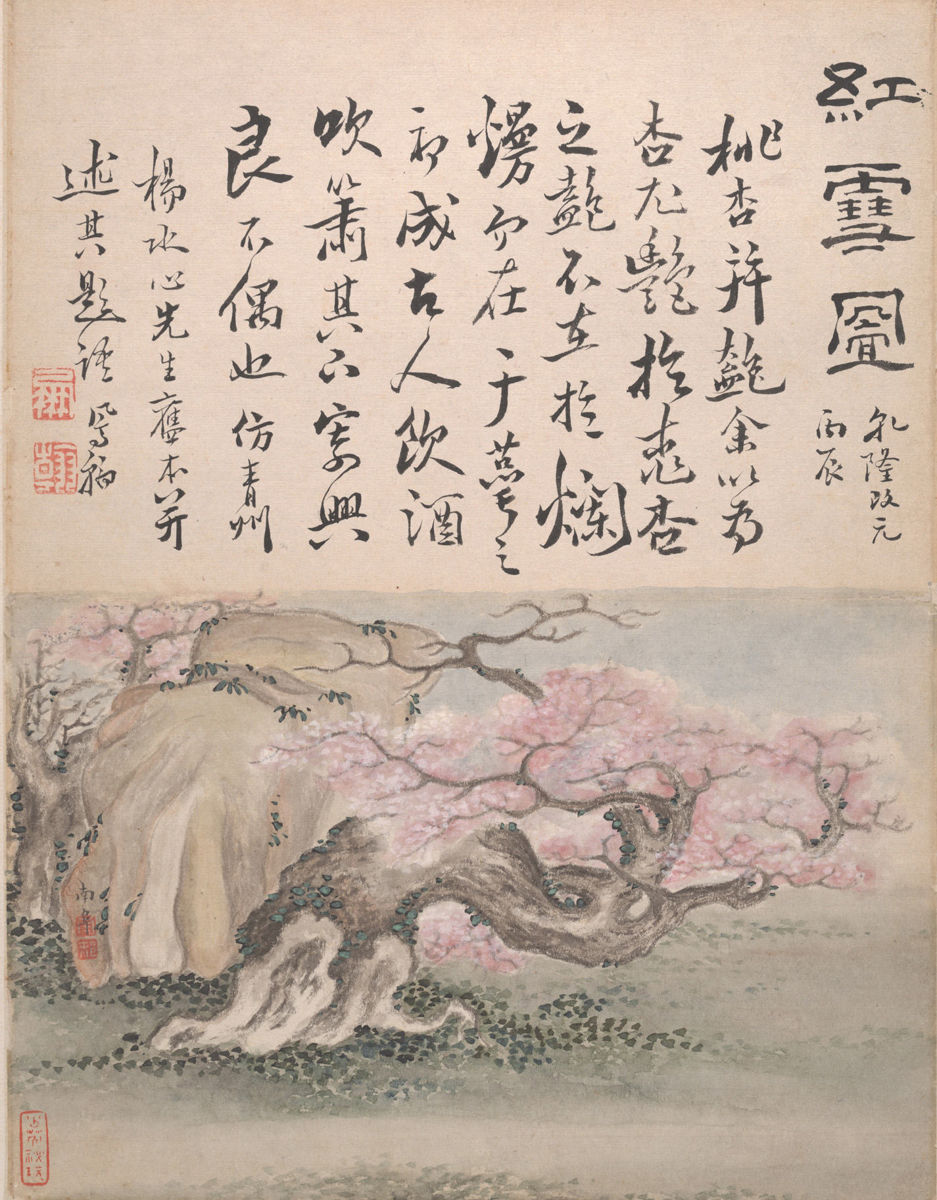 紅雪圖
乾隆改元
丙辰
桃杏并艷余以為
杏尤艷於桃杏
之艷不在於爛
熳而在于蕚之
初成古人飲酒
吹簫其下寄興
良不偶也仿青州
楊水心先生舊本并
述其題語
南阜